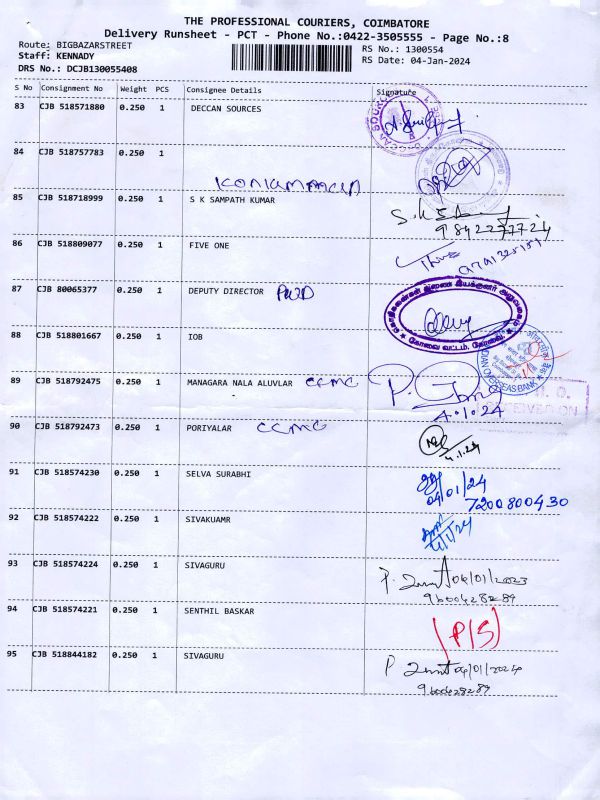 THE PROFESSIONAL COURIERS, COIMBATORE
Delivery Runsheet - PCT - Phone No.:0422-3505555 - Page No.:8
Route: BIGBAZARSTREET
RS No.: 1300554
Staff: KENNADY
RS Date: 04-Jan-2024
DRS No.: DCJB130055408
S No Consignment No Weight PCS Consignee Details Signature
83 CJB 518571880 0.250 1 DECCAN SOURCES
84 CJB 518757783 0.250 1
85 CJB 518718999 0.250 1 S K SAMPATH KUMAR
9842277724
86 CJB 518809077 0.250 1 FIVE ONE
87 CJB 80065377 0.250 1 DEPUTY DIRECTOR PWD
கோவை வட்டம், கோவை
88 CJB 518801667 0.250 1 IOB
INDIAN OVERSEAS BANK
89 CJB 518792475 0.250 1 MANAGARA NALA ALUVLAR CCMC
4.1.24
90 CJB 518792473 0.250 1 PORIYALAR CCMC
4.1.24
91 CJB 518574230 0.250 1 SELVA SURABHI
04/01/24
7200800430
92 CJB 518574222 0.250 1 SIVAKUAMR
4/1/24
93 CJB 518574224 0.250 1 SIVAGURU
04/01/2023
9600428289
94 CJB 518574221 0.250 1 SENTHIL BASKAR
(P/S)
95 CJB 518844182 0.250 1 SIVAGURU
04/01/2024
9600428289